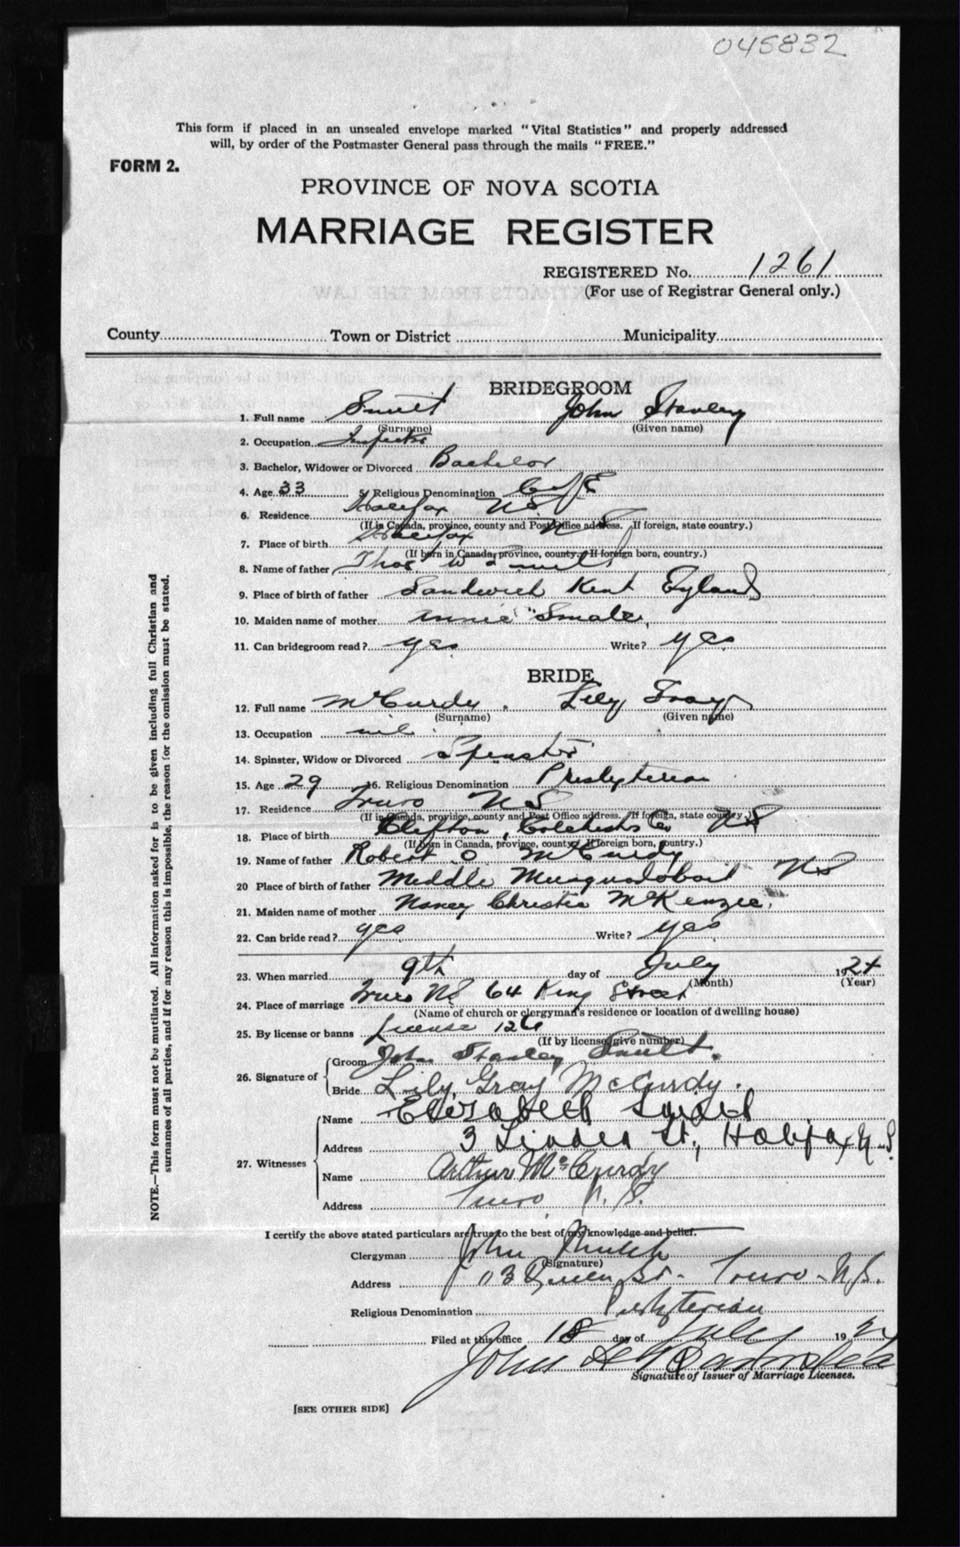 045832
This form if placed in an unsealed envelope marked "Vital Statistics" and properly addressed
will, by order of the Postmaster General pass through the mails "FREE."
FORM 2.
PROVINCE OF NOVA SCOTIA
MARRIAGE REGISTER
REGISTERED No. 1261
(For use of Registrar General only.)
County Town or District Municipality
BRIDEGROOM
1. Full name John Stanley
(Surname) (Given name)
2. Occupation Inspector
3. Bachelor, Widower or Divorced Bachelor
4. Age 33 5. Religious Denomination C of E
6. Residence Halifax NS
(If in Canada, province, county and Post Office address. If foreign, state country.)
7. Place of birth Halifax NS
(If born in Canada, province, county. If foreign born, country.)
8. Name of father Thos W
9. Place of birth of father Sandwich Kent England
10. Maiden name of mother Annie Smale
11. Can bridegroom read? yes Write? yes
BRIDE
12. Full name McCurdy Lily Gray
(Surname) (Given name)
13. Occupation nil
14. Spinster, Widow or Divorced Spinster
15. Age 29 16. Religious Denomination Presbyterian
17. Residence Truro NS
(If in Canada, province, county and Post Office address. If foreign, state country.)
18. Place of birth Clifton, Colchester Co NS
(If born in Canada, province, county. If foreign born, country.)
19. Name of father Robert O McCurdy
20 Place of birth of father Middle Musquodoboit NS
21. Maiden name of mother Nancy Christie McKenzie
22. Can bride read? yes Write? yes
23. When married 9th day of July 1924
(Month) (Year)
24. Place of marriage Truro NS 64 King Street
(Name of church or clergyman's residence or location of dwelling house)
25. By license or banns License
(If by license, give number)
26. Signature of
Groom John Stanley
Bride Lily Gray McCurdy.
27. Witnesses
Name Elizabeth
Address 3 Linden St, Halifax N.S.
Name Arthur McCurdy
Address Truro, N.S.
I certify the above stated particulars are true to the best of my knowledge and belief.
Clergyman John
(Signature)
Address Queen St. - Truro - N.S.
Religious Denomination Presbyterian
Filed at this office 18 day of July 192
John
Signature of Issuer of Marriage Licenses.
[SEE OTHER SIDE]
NOTE.—This form must not be mutilated. All information asked for is to be given including full Christian and
surnames of all parties, and if for any reason this is impossible, the reason for the omission must be stated.